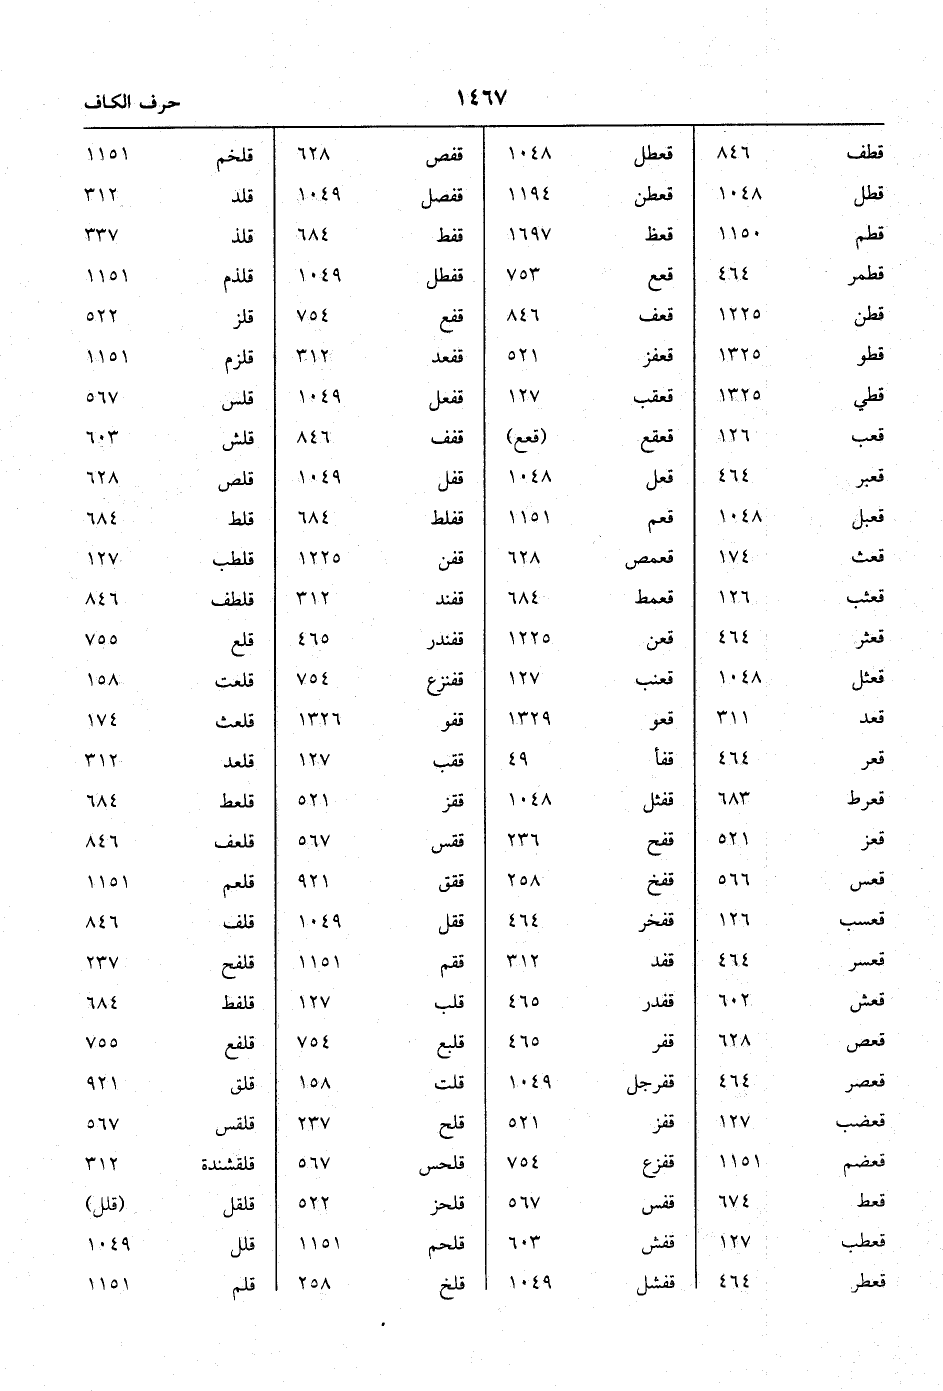 حرف الكاف
١٤٦٧
قطف ٨٤٦
قطل ١٠٤٨
قطم ١١٥٠
قطمر ٤٦٤
قطن ١٢٢٥
قطو ١٣٢٥
قطي ١٣٢٥
قعب ١٢٦
قعبر ٤٦٤
قعبل ١٠٤٨
قعث ١٧٤
قعثب ١٢٦
قعثر ٤٦٤
قعثل ١٠٤٨
قعد ٣١١
قعر ٤٦٤
قعرط ٦٨٣
قعز ٥٢١
قعس ٥٦٦
قعسب ١٢٦
قعسر ٤٦٤
قعش ٦٠٢
قعص ٦٢٨
قعصر ٤٦٤
قعضب ١٢٧
قعضم ١١٥١
قعط ٦٧٤
قعطب ١٢٧
قعطر ٤٦٤
قعطل ١٠٤٨
قعطن ١١٩٤
قعظ ١٦٩٧
قعع ٧٥٣
قعف ٨٤٦
قعفز ٥٢١
قعقب ١٢٧
قعقع (قعع)
قعل ١٠٤٨
قعم ١١٥١
قعمص ٦٢٨
قعمط ٦٨٤
قعن ١٢٢٥
قعنب ١٢٧
قعو ١٣٢٩
قفأ ٤٩
قفثل ١٠٤٨
قفح ٢٣٦
قفخ ٢٥٨
قفخر ٤٦٤
قفد ٣١٢
قفدر ٤٦٥
قفر ٤٦٥
قفرجل ١٠٤٩
قفز ٥٢١
قفزع ٧٥٤
قفس ٥٦٧
قفش ٦٠٣
قفشل ١٠٤٩
قفص ٦٢٨
قفصل ١٠٤٩
قفط ٦٨٤
قفطل ١٠٤٩
قفع ٧٥٤
قفعد ٣١٢
قفعل ١٠٤٩
قفف ٨٤٦
قفل ١٠٤٩
قفلط ٦٨٤
قفن ١٢٢٥
قفند ٣١٢
قفندر ٤٦٥
قفنزع ٧٥٤
قفو ١٣٢٦
ققب ١٢٧
ققز ٥٢١
ققس ٥٦٧
ققق ٩٢١
ققل ١٠٤٩
ققم ١١٥١
قلب ١٢٧
قلبع ٧٥٤
قلت ١٥٨
قلح ٢٣٧
قلحس ٥٦٧
قلحز ٥٢٢
قلحم ١١٥١
قلخ ٢٥٨
قلخم ١١٥١
قلد ٣١٢
قلذ ٣٣٧
قلذم ١١٥١
قلز ٥٢٢
قلزم ١١٥١
قلس ٥٦٧
قلش ٦٠٣
قلص ٦٢٨
قلط ٦٨٤
قلطب ١٢٧
قلطف ٨٤٦
قلع ٧٥٥
قلعت ١٥٨
قلعث ١٧٤
قلعد ٣١٢
قلعط ٦٨٤
قلعف ٨٤٦
قلعم ١١٥١
قلف ٨٤٦
قلفح ٢٣٧
قلفط ٦٨٤
قلفع ٧٥٥
قلق ٩٢١
قلقس ٥٦٧
قلقشندة ٣١٢
قلقل (قلل)
قلل ١٠٤٩
قلم ١١٥١